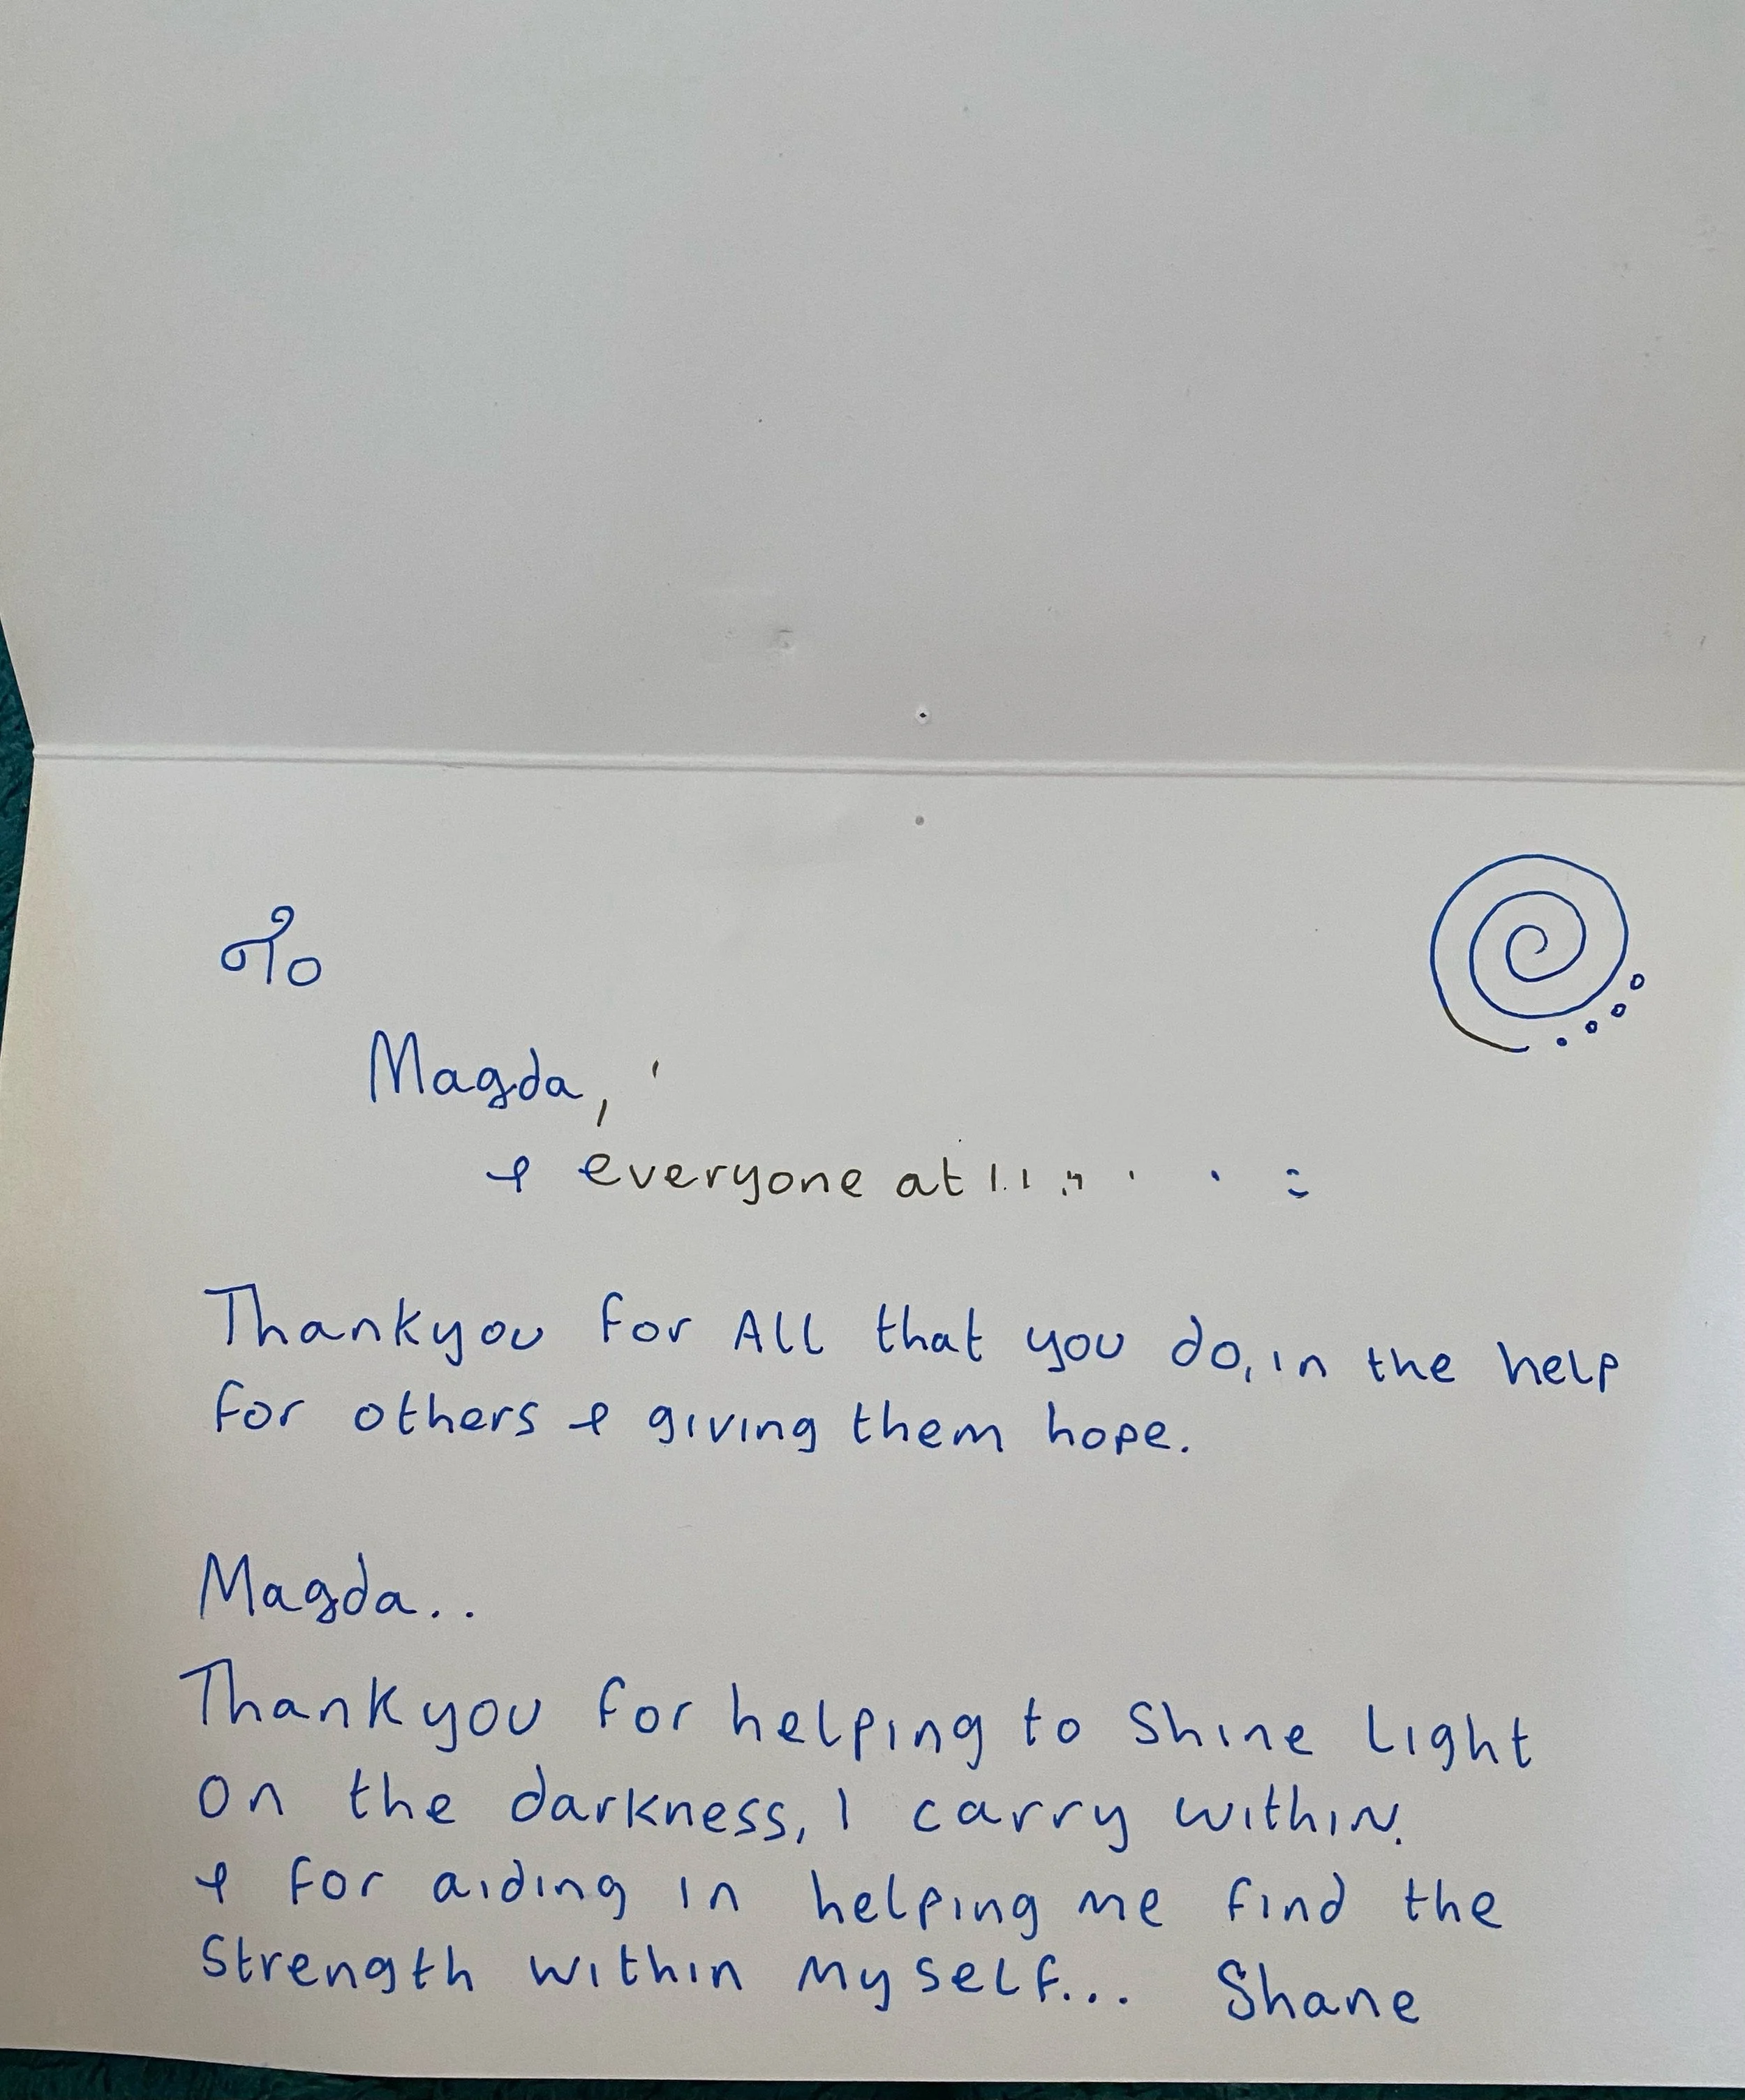 To
Magda,
& everyone at
Thankyou for All that you do, in the help
for others & giving them hope.
Magda..
Thankyou for helping to shine light
on the darkness, I carry within.
& for aiding in helping me find the
strength within myself... Shane